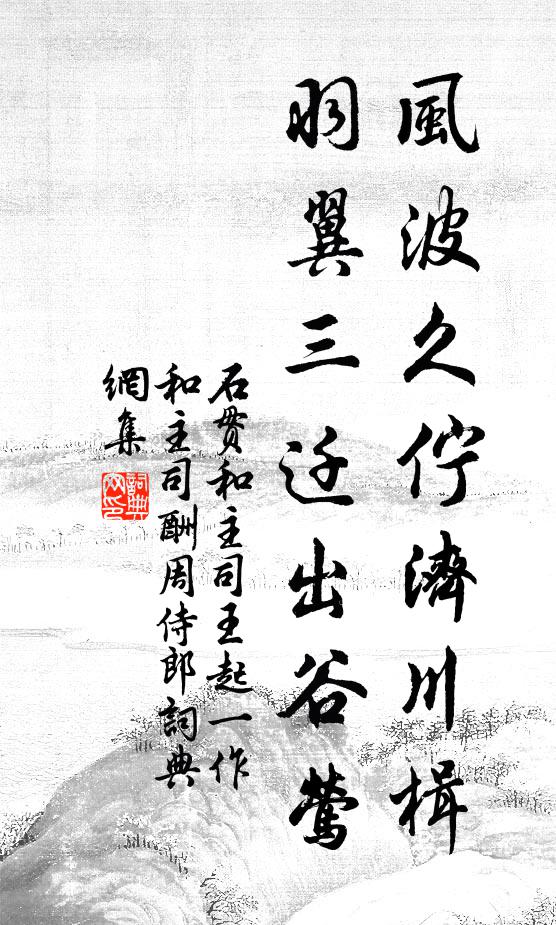 風波久佇濟川楫
羽翼三迁出谷鶯
石贯和主司王起一作
和主司酬周侍郎詞典
網集
詞典網印